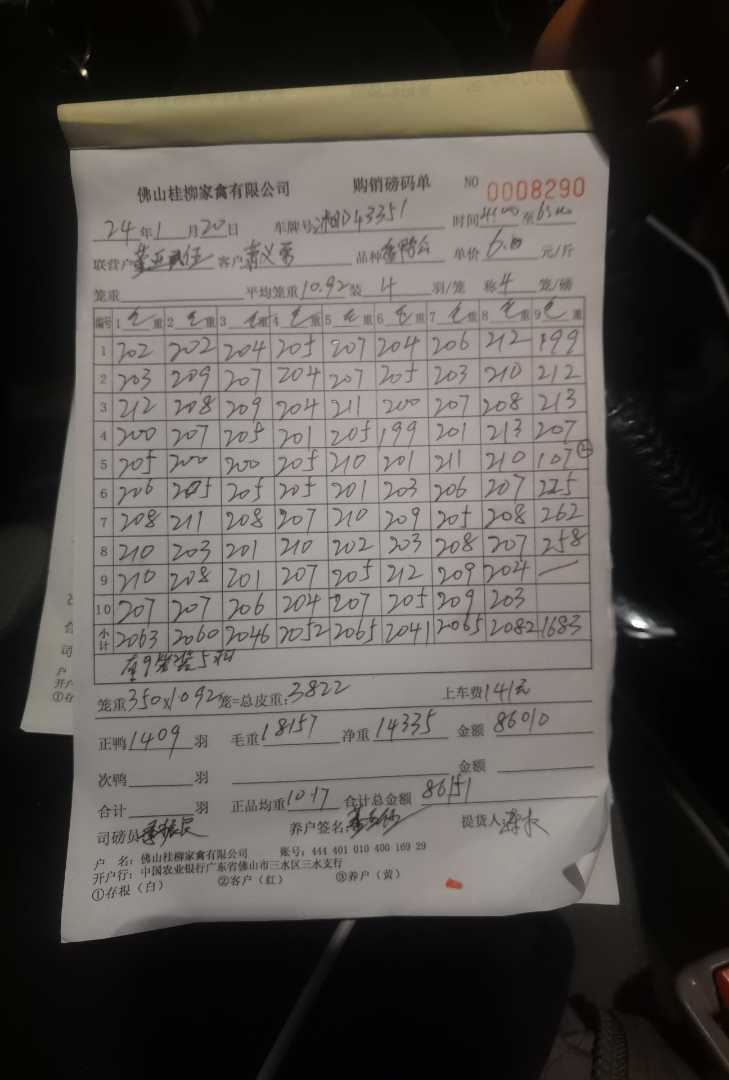 佛山桂柳家禽有限公司 购销磅码单 NO 0008290
24年1月20日 车牌号湘D43351 时间4:00至6:00
联营户 客户 品种 单价6.00元/斤
笼重 平均笼重10.92装4羽/笼 称4笼/磅
编号 1毛重 2毛重 3毛重 4毛重 5毛重 6毛重 7毛重 8毛重 9毛重
1 202 202 204 205 207 204 206 212 199
2 203 209 207 204 207 205 203 210 212
3 212 208 209 204 211 200 207 208 213
4 200 207 205 201 205 199 201 213 207
5 205 200 200 205 210 201 211 210 107②
6 206 205 205 205 201 203 206 207 225
7 208 211 208 207 210 209 205 208 262
8 210 203 201 210 202 203 208 207 258
9 210 208 201 207 205 212 209 204 —
10 207 207 206 204 207 205 209 203
小计 2063 2060 2046 2052 2065 2041 2065 2082 1683
笼重350×10.92笼=总皮重:3822 上车费141元
正鸭1409羽 毛重18157 净重14335 金额86010
次鸭 羽 金额
合计 羽 正品均重10.17 合计总金额86151
司磅员 养户签名 提货人
户 名:佛山桂柳家禽有限公司 账号:444 401 010 400 169 29
开户行:中国农业银行广东省佛山市三水区三水支行
①存根(白) ②客户(红) ③养户(黄)